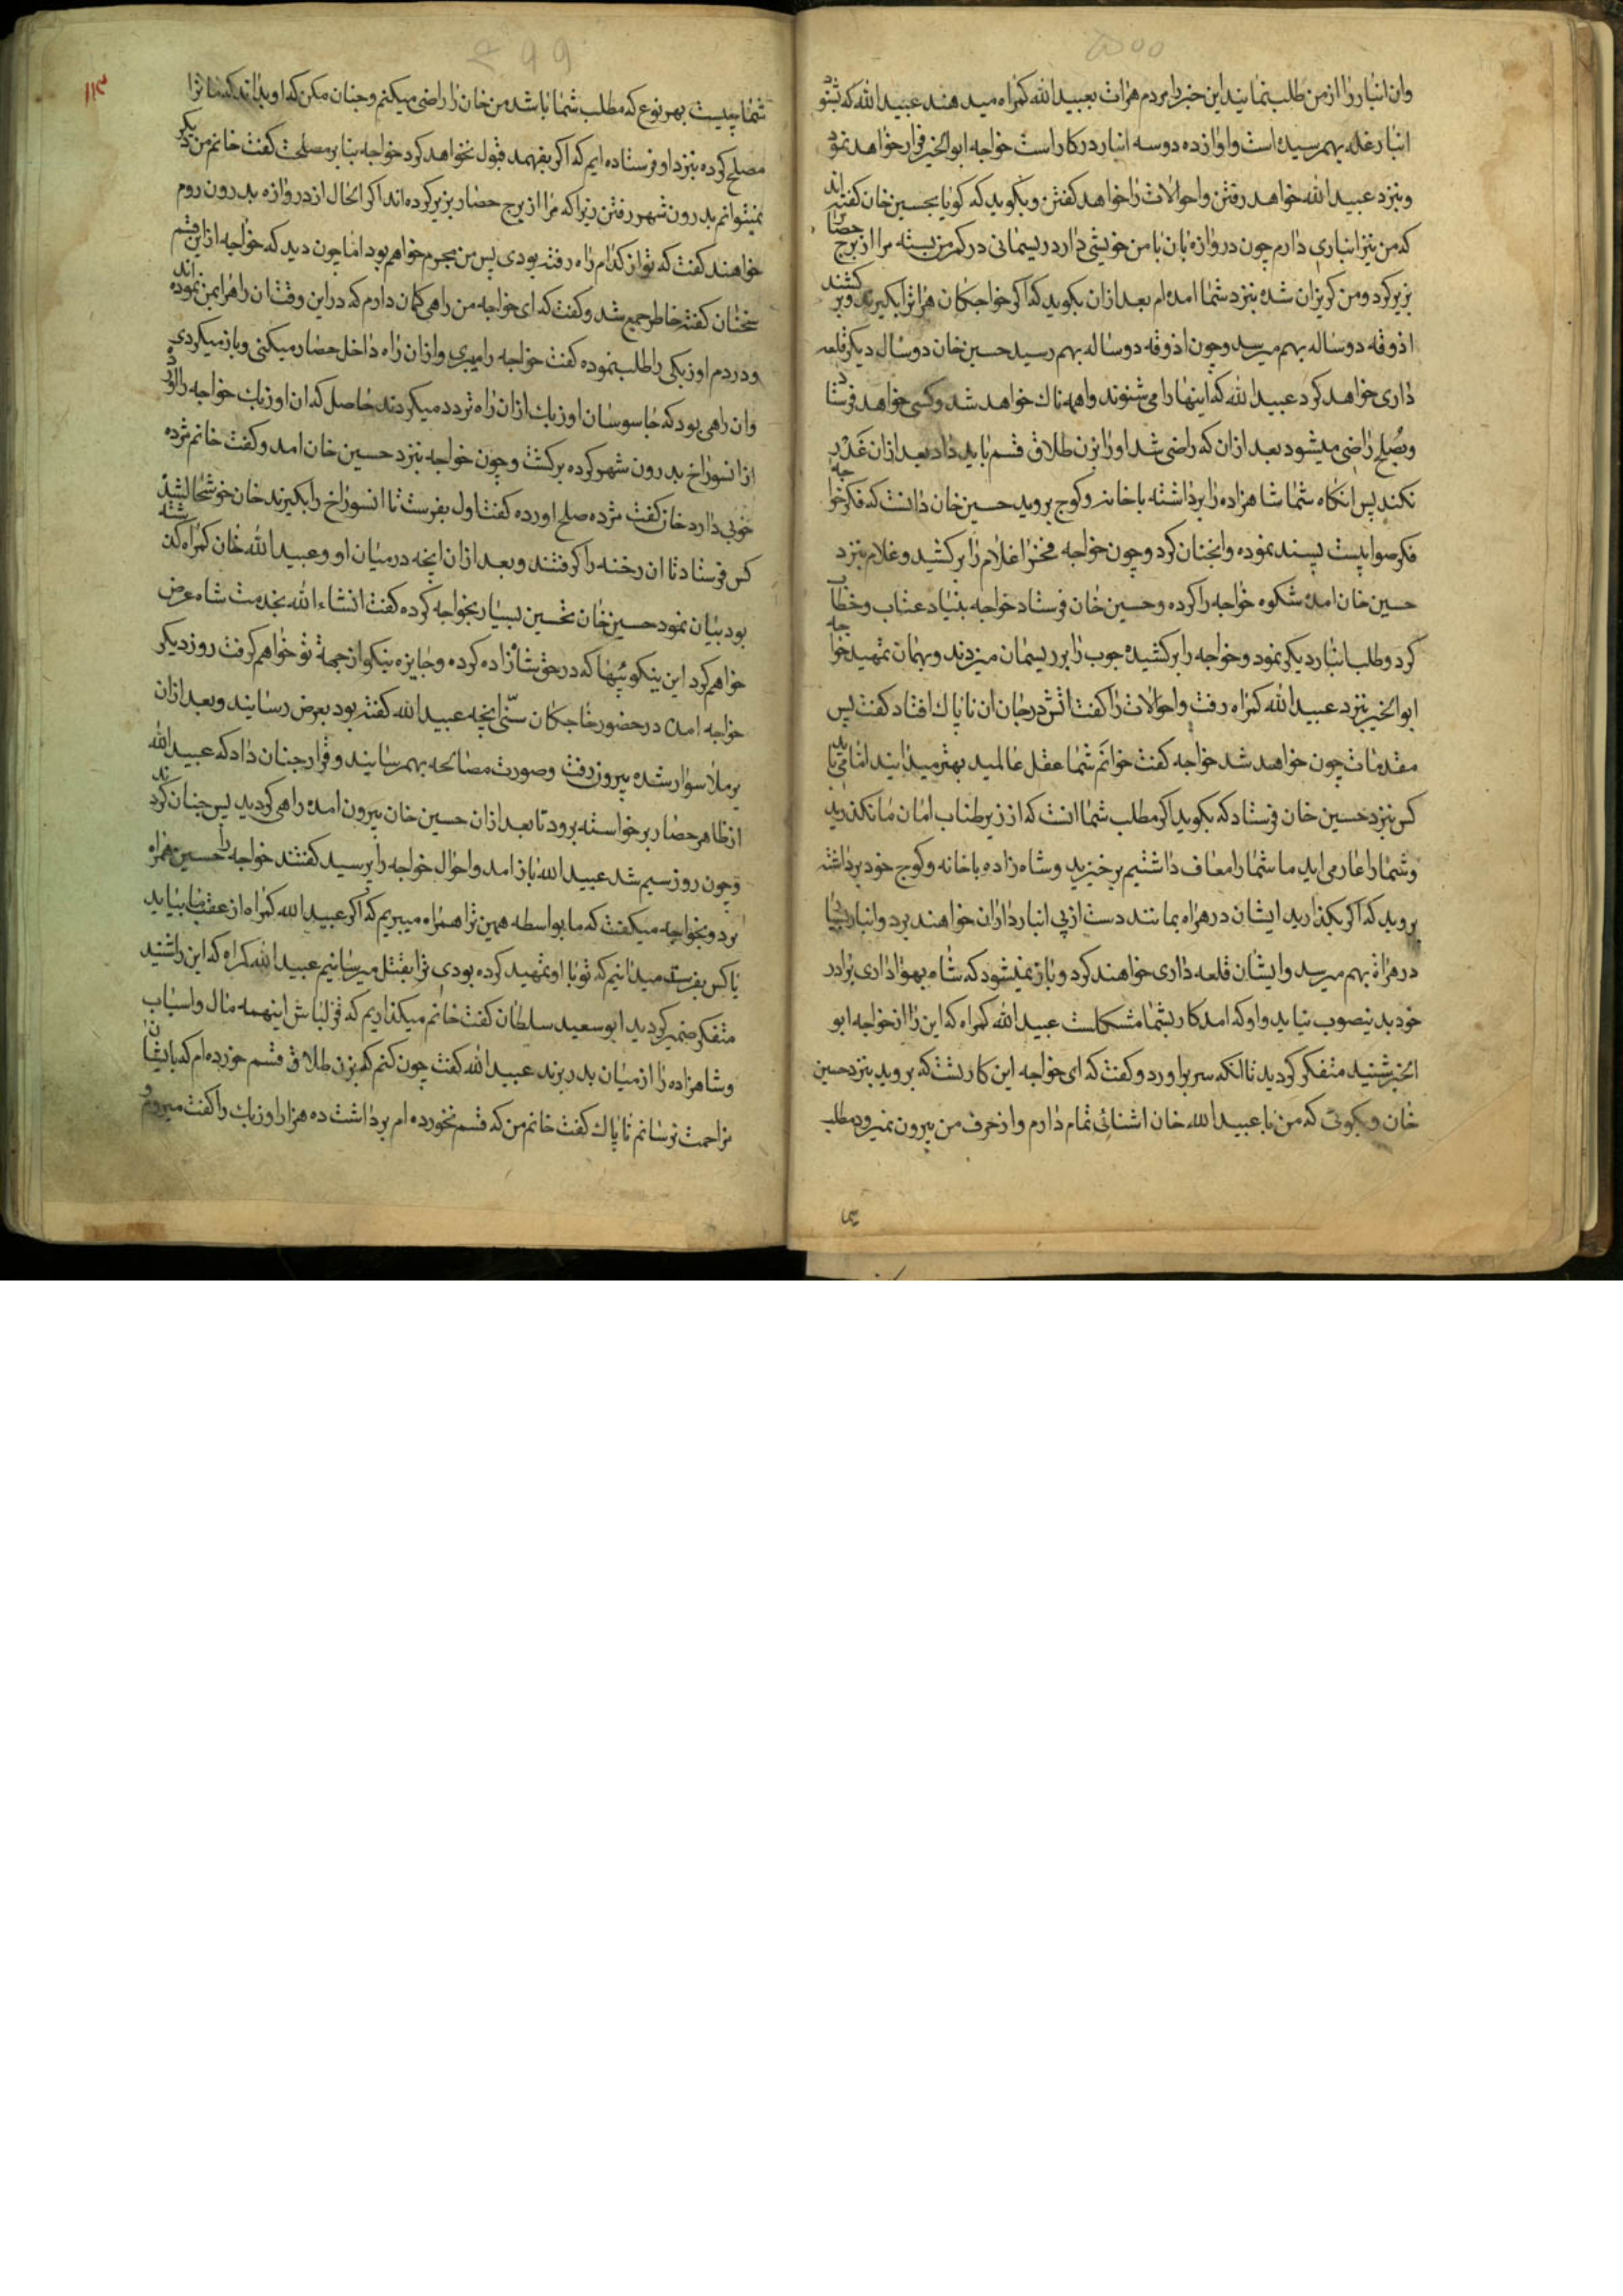 ۵۰۰
وان انبار را از من طلب نمایند این خبر را مردم هرات بعبید الله کمراه میدهند عبید الله که شنود
انبار غله بهم رسیده است و اوازه ده دوسه انبار در کار است خواجه ابو الخیر فرار خواهد نمود
و بنزد عبید الله خواهد رفتن و احوالات را خواهد کفتن و بکوید که کویا بحسین خان کفته اند
که من نیز انباری دارم چون دروازه بان با من خویشی دارد ریسمانی در کمر من بسته مرا از برج حصار
بزیر کرد و من کریزان شده بنزد شما امده ام بعد ازان بکوید که اکر خواجکان هرات را بکیرند و بر کشند
اذوقه دوساله بهم میرسد و چون اذوقه دوساله بهم رسید حسین خان دوسال دیکر قلعه
داری خواهد کرد عبید الله که اینها را می شنوند واهمه ناک خواهد شد و کسی خواهد فرستاد
و بصلح راضی میشود بعد ازان که راضی شد او را بزن طلاق قسم باید داد بعد ازان غدر
نکند پس انکاه شما شاهزاده را برداشته با خانه و کوچ بروید حسین خان دانست که فکر خواجه
فکر صوابیست پسند نموده و انچنان کرد و چون خواجه فخرا غلام را بر کشید و غلام بنزد
حسین خان امده شکوه خواجه را کرده و حسین خان فرستاد خواجه بنیاد عتاب و خطاب
کرد و طلب انبار دیکر نمود و خواجه را بر کشیده چوب را بر ریسمان میزدند و بهمان تمهید خواجه
ابو الخیر بنزد عبید الله کمراه رفت و احوالات را کفت اتش در جان ان ناپاک افتاد کفت پس
مقدمات چون خواهد شد خواجه کفت خوانم شما عقل عالمید بهتر میدانید اما می باید
کس بنزد حسین خان فرستاد که بکوید اکر مطلب شما انست که از زیر طناب امان ما نکذرید
و شما را عار می اید ما شما را معاف داشتیم برخیزید و شاه زاده با خانه و کوچ خود برداشته
بروید که اکر بکذارید ایشان در هراه بمانند دست از پی انبار داران خواهند برد و انبار بسیار
در هراة بهم میرسد و ایشان قلعه داری خواهند کرد و باز نمیشود که شاه بهواداری برادر
خود بدینصوب نیاید و او که امد کار بشما مشکلست عبید الله کمراه که این را از خواجه ابو
الخیر شنید متفکر کردید تا انکه سر براورد و کفت که ای خواجه این کار تست که بروید بنزد حسین
خان و بکوئی که من با عبید الله خان اشنائی تمام دارم و از حرف من بیرون نمیرود مطلب
شما
۴۹۹
۱۱۳
شما چیست بهر نوع که مطلب شما باشد من خان را راضی میکنم و چنان مکن که او بداند که ما ترا
مصلح کرده بنزد او فرستاده ایم که اکر بفهمد قبول نخواهد کرد خواجه بنابر مصلحت کفت خانم من دیکر
نمیتوانم بدرون شهر رفتن زیرا که مرا از برج حصار بزیر کرده اند اکر الحال از دروازه بدرون روم
خواهند کفت که تو از کدام راه رفته بودی پس من مجرم خواهم بود اما چون دید که خواجه از این قسم
سخنان کفت خاطر جمع شد و کفت که ای خواجه من راهی کمان دارم که در این وقت ان راه را بمن نموده اند
و در دم اوزبکی را طلب نموده کفت خواجه را میبری و ازان راه داخل حصار میکنی و باز میکردی
وان راهی بود که جاسوسان اوزبک ازان راه تردد میکردند حاصل که ان اوزبک خواجه را اورده
ازان سوراخ بدرون شهر کرده برکشت و چون خواجه بنزد حسین خان امد و کفت خانم مژده
خوبی دارد خان کفت مژده صلح اورده کفت اول بفرست تا ان سوراخ را بکیرند خان خوشحال شد
کس فرستاد تا ان رخنه را کرفتند و بعد ازان انچه در میان او و عبید الله خان کمراه کذشته
بود بیان نمود حسین خان تحسین بسیار بخواجه کرده کفت انشاء الله بخدمت شاه عرض
خواهم کرد این نیکوئیها که در حق شازاده کرده و جایزه نیکو از جهة تو خواهم کرفت روز دیکر
خواجه امد در حضور خاجکان سنی انچه عبید الله کفته بود بعرض رسانید و بعد ازان
برملا سوار شده بیرون رفت و صورت مصالحه بهم رسانید و قرار چنان داد که عبید الله
از ظاهر حصار برخواسته برود تا بعد ازان حسین خان بیرون امده راهی کردید پس چنان کردند
و چون روز سیم شد عبید الله باز امد و احوال خواجه را پرسید کفتند خواجه را حسین همراه
برد و بخواجه میکفت که ما بواسطه همین ترا همراه میبریم که اکر عبید الله کمراه از عقب ما بیاید
یا کس بفرستد میدانیم که تو با او تمهید کرده بودی ترا بقتل میرسانیم عبید الله کمراه که این را شنید
متفکر ضمیر کردید ابو سعید سلطان کفت خانم میکذاریم که قزلباش اینهمه مال و اسباب
و شاهزاده را از میان بدر برند عبید الله کفت چون کنم که بزن طلاق قسم خورده ام که بایشان
مزاحمت نرسانم ناپاک کفت خانم من که قسم نخورده ام برداشت ده هزار اوزبک را کفت میروم و